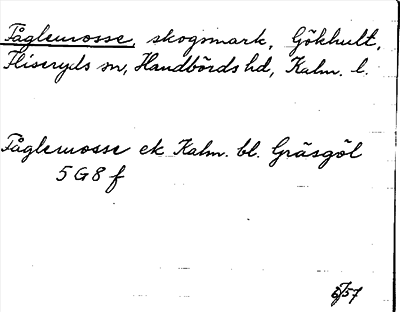 Fåglemosse, skogsmark, Gökhult,
Fliseryds sn, Handbörds hd, Kalm. l.
Fåglemosse ek Kalm. bl. Gräsgöl
5 G 8 f
57